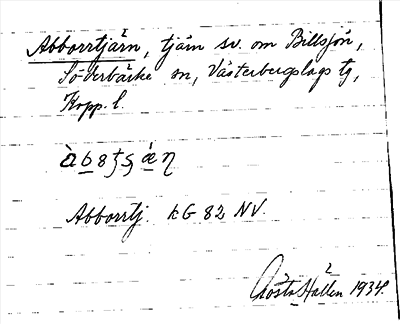 Abborrtjärn, tjärn sv. om Billsjön,
Söderbärke sn, Västerbergslags tg,
Kopp. l.
Abborrtj. KG 82 NV.
Gösta Hallen 1934.